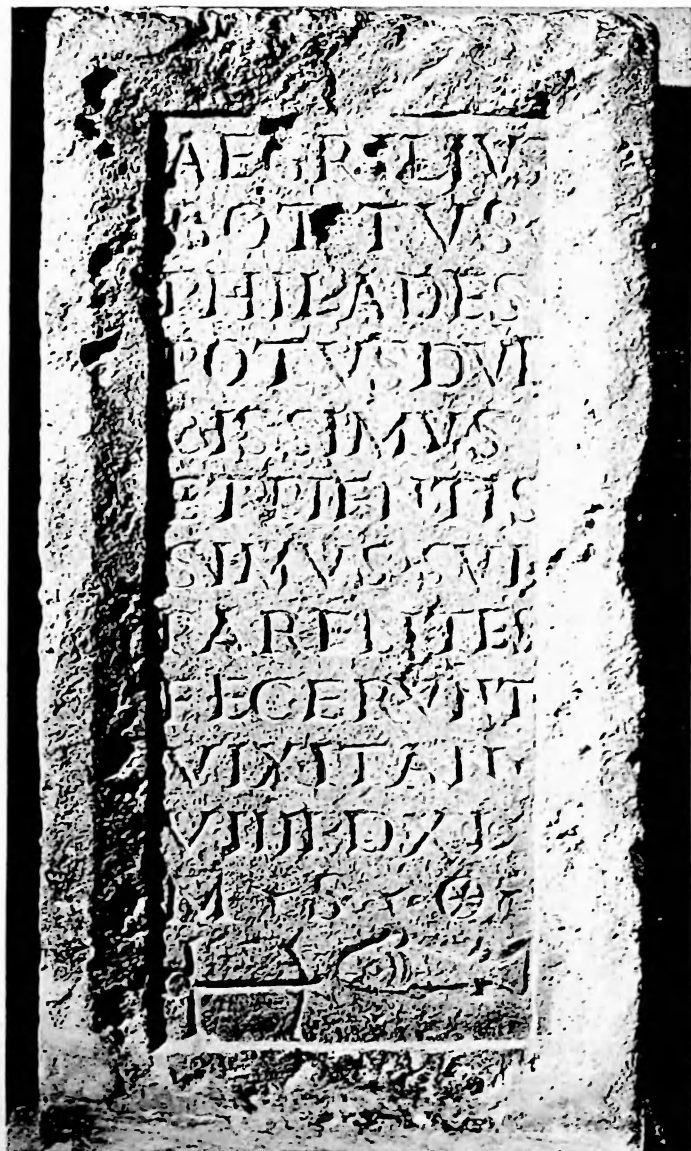 AEGRILIVS
BOTTVS
PHILADES
POTVS DVL
CISSIMVS
ET PIENTIS
SIMVS SVI
PARENTES
FECERVNT
VIXIT AN
VIIII D
M S